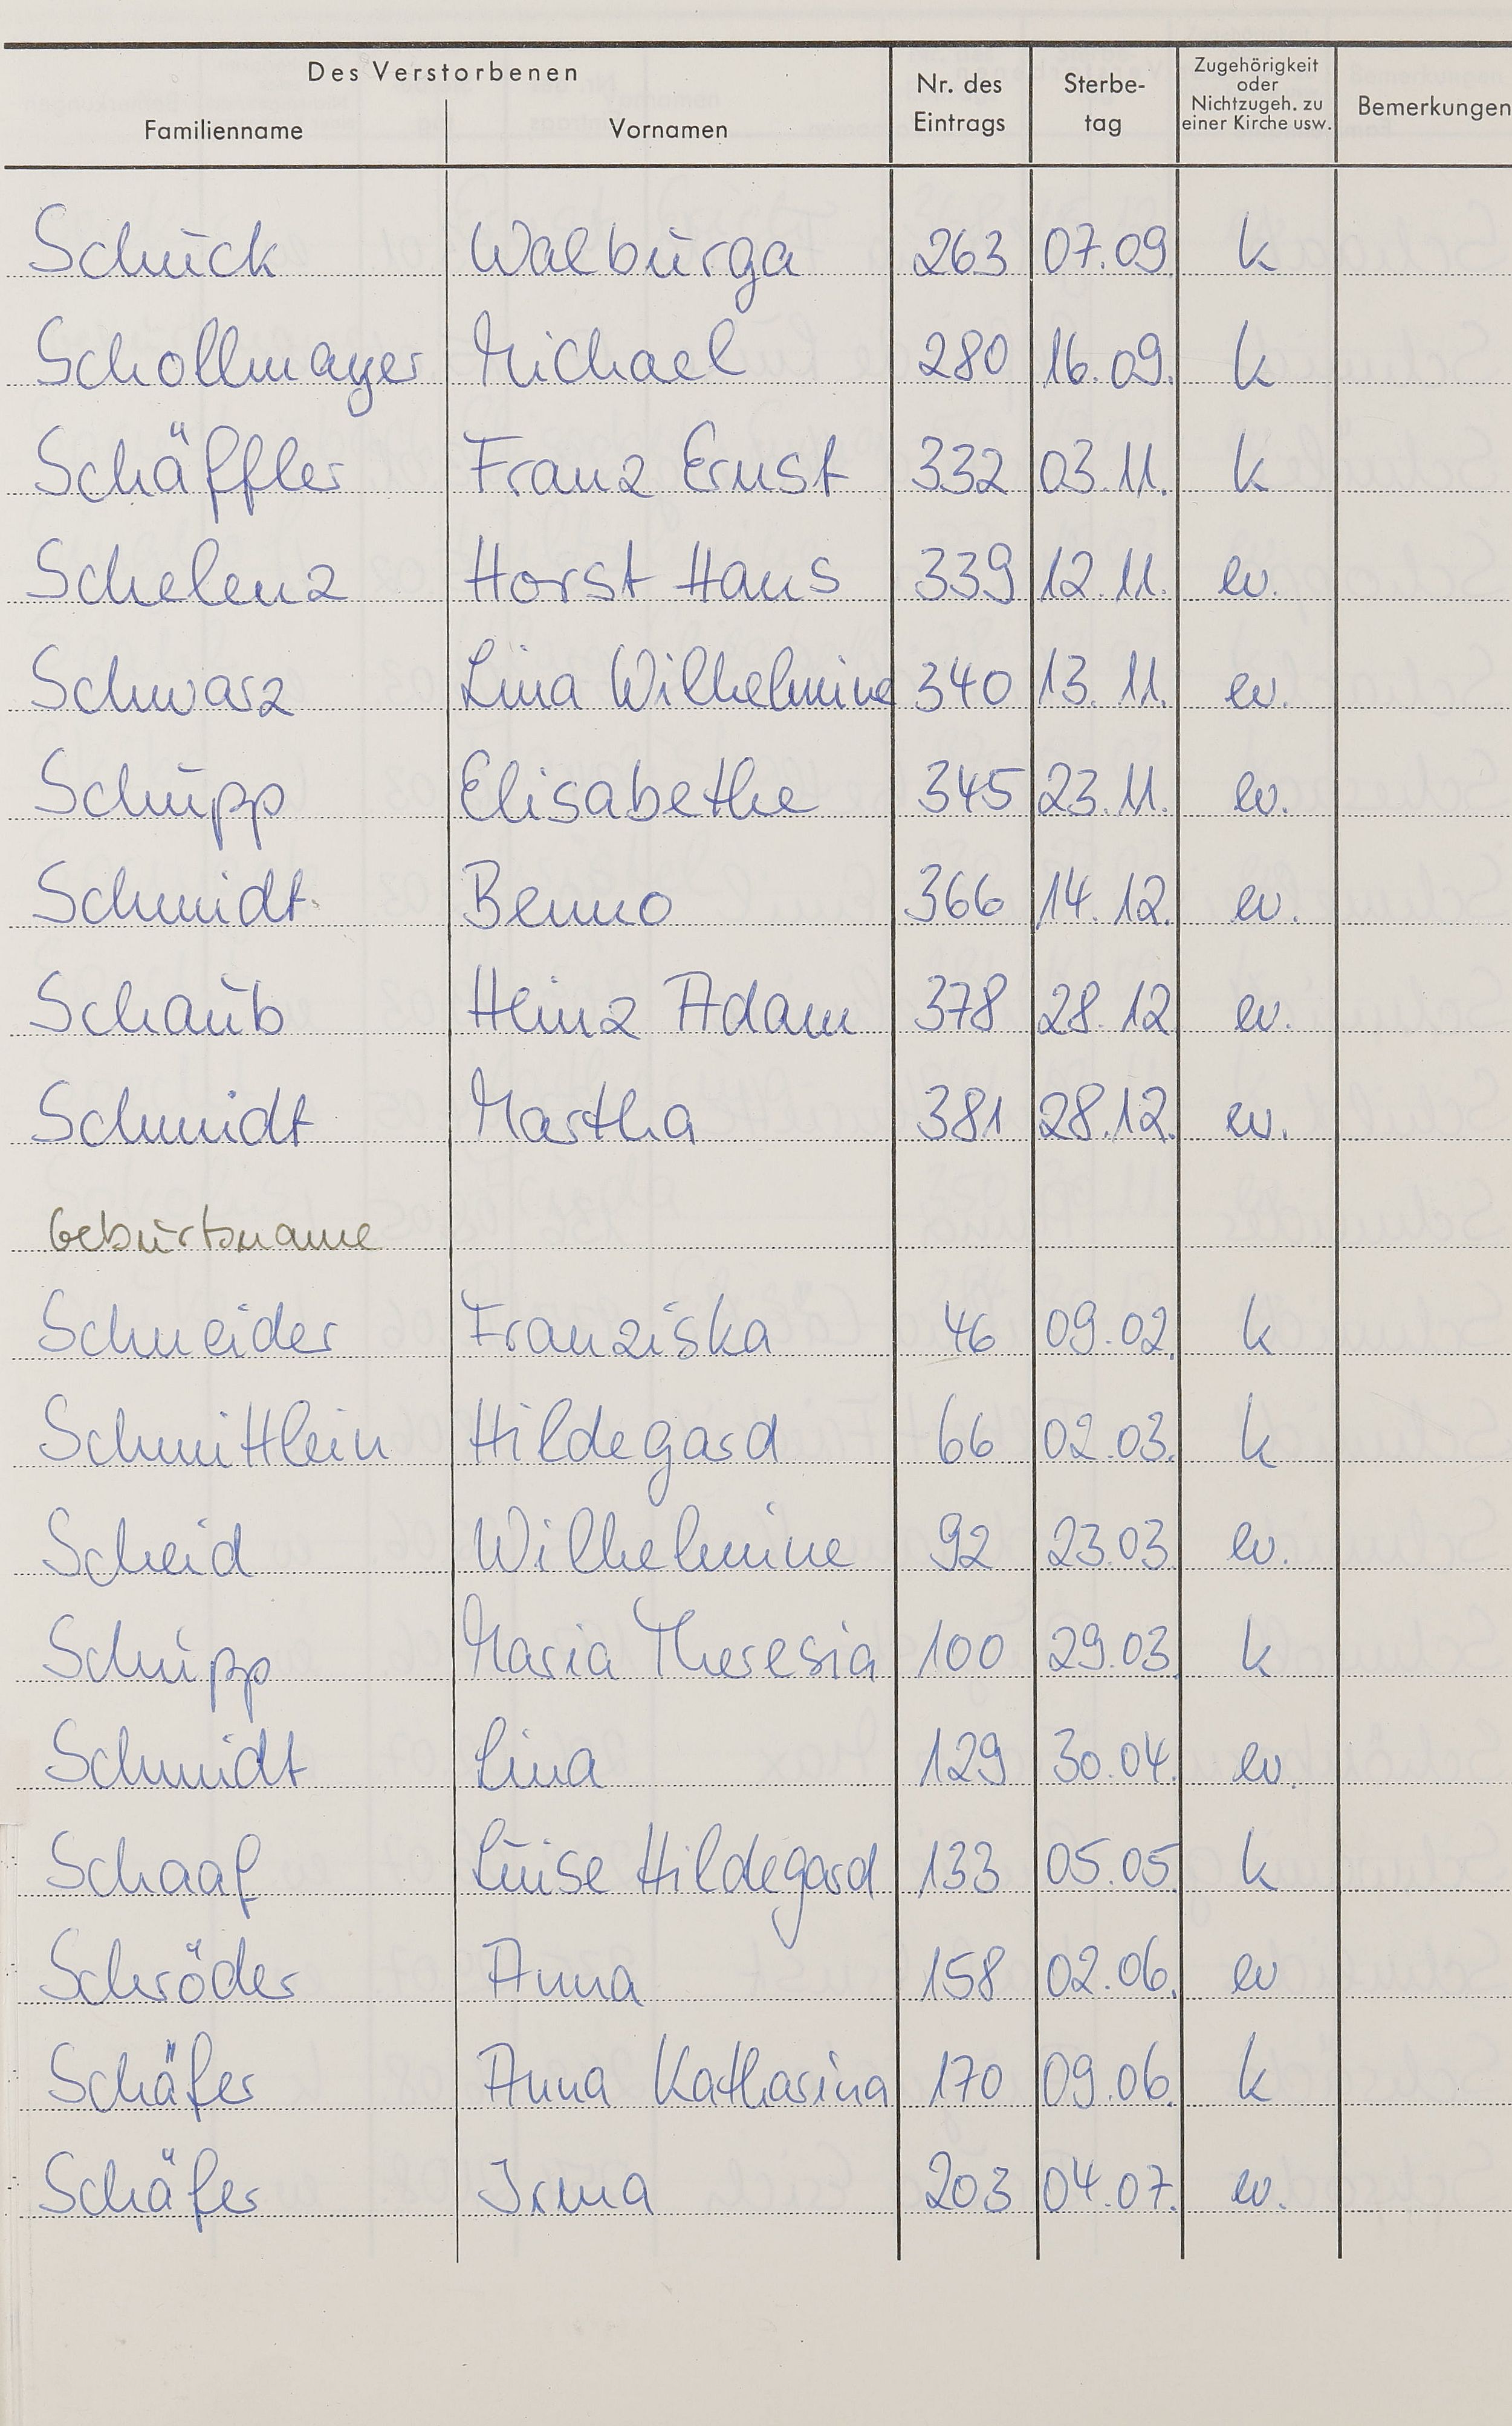 Des Verstorbenen
Familienname Vornamen Nr. des Eintrags Sterbe-tag Zugehörigkeit oder Nichtzugeh. zu einer Kirche usw. Bemerkungen
Schuck Walburga 263 07.09. k
Schollmayer Michael 280 16.09. k
Schäffler Franz Ernst 332 03.11. k
Schelenz Horst Hans 339 12.11. ev.
Schwarz Lina Wilhelmine 340 13.11. ev.
Schupp Elisabethe 345 23.11. ev.
Schmidt Benno 366 14.12. ev.
Schaub Heinz Adam 378 28.12 ev.
Schmidt Martha 381 28.12. ev.
Geburtsname
Schneider Franziska 46 09.02. k
Schmittlein Hildegard 66 02.03. k
Scheid Wilhelmine 92 23.03. ev.
Schupp Maria Theresia 100 29.03. k
Schmidt Lina 129 30.04. ev.
Schaaf Luise Hildegard 133 05.05. k
Schröder Anna 158 02.06. ev
Schäfer Anna Katharina 170 09.06. k
Schäfer Irma 203 04.07. ev.